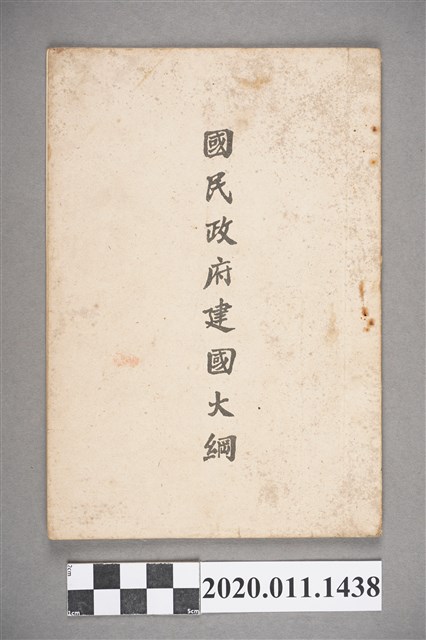 國民政府建國大綱
2cm
1cm
5cm
2020.011.1438